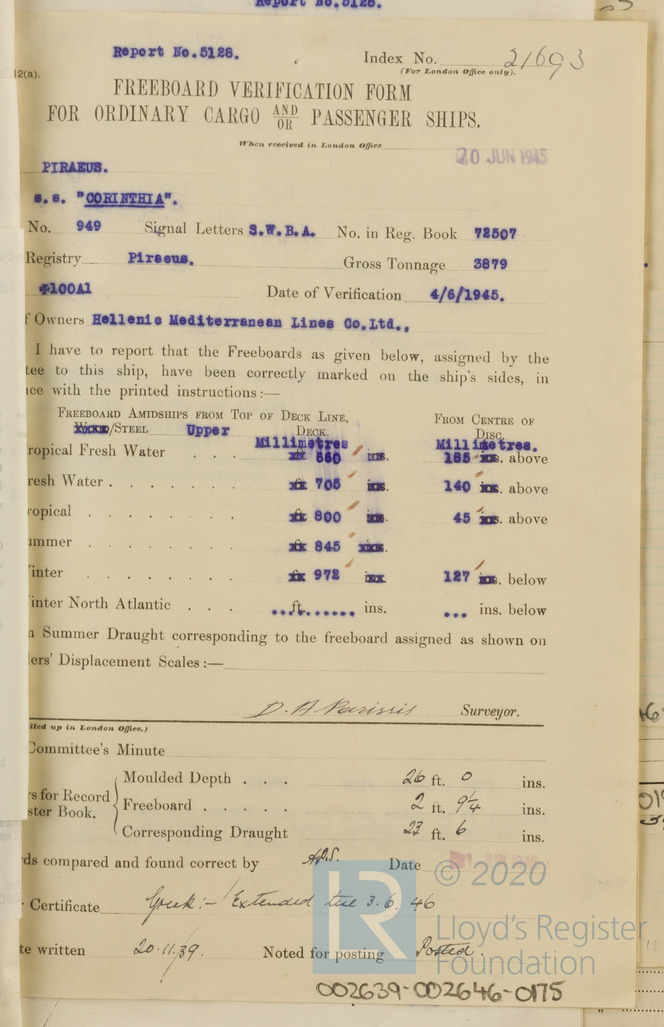 Report No.5128.
Report No.5128.
Index No. 21693
(For London Office only).
12(a).
FREEBOARD VERIFICATION FORM
FOR ORDINARY CARGO AND/OR PASSENGER SHIPS.
When received in London Office
20 JUN 1945
PIRAEUS.
s.s. "CORINTHIA".
No. 949 Signal Letters S.W.B.A. No. in Reg. Book 72507
Registry Piraeus. Gross Tonnage 3879
+100A1 Date of Verification 4/6/1945.
f Owners Hellenic Mediterranean Lines Co.Ltd.,
I have to report that the Freeboards as given below, assigned by the
tee to this ship, have been correctly marked on the ship's sides, in
ce with the printed instructions:—
FREEBOARD AMIDSHIPS FROM TOP OF DECK LINE, FROM CENTRE OF
/STEEL Upper DECK. DISC.
Millimetres Millimetres.
ropical Fresh Water . . . 660 ins. 185 ins. above
resh Water . . . . . . . 705 ins. 140 ins. above
ropical . . . . . . . 800 ins. 45 ins. above
ummer . . . . . . . 845
inter . . . . . . . 972 127 ins. below
inter North Atlantic . . . ...ft....... ins. ... ins. below
n Summer Draught corresponding to the freeboard assigned as shown on
ers' Displacement Scales:—
D. A Parissis Surveyor.
lled up in London Office.)
Committee's Minute
Moulded Depth . . . 26 ft. 0 ins.
rs for Record
ster Book.
Freeboard . . . . . 2 ft. 9¼ ins.
Corresponding Draught 23 ft. 6 ins.
ds compared and found correct by Date
Certificate Greek:- Extended till 3.6.46
te written 20.11.39. Noted for posting Posted.
© 2020
LR
Lloyd's Register
Foundation
002639-002646-0175